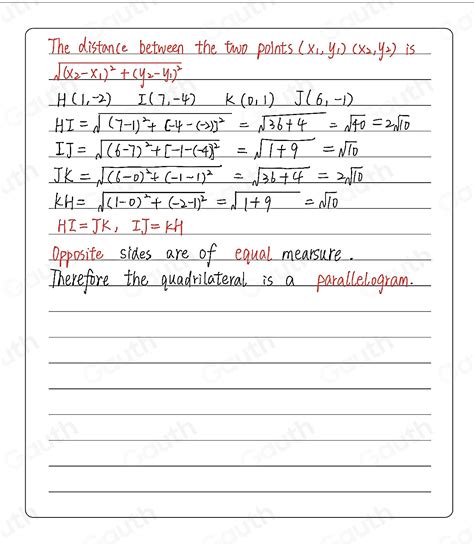 The distance between the two points (x₁, y₁) (x₂, y₂) is
√(x₂-x₁)² + (y₂-y₁)²
H(1,-2) I(7,-4) K(0,1) J(6,-1)
HI = √(7-1)² + [-4-(-2)]² = √36+4 = √40 = 2√10
IJ = √(6-7)² + [-1-(-4)]² = √1+9 = √10
JK = √(6-0)² + (-1-1)² = √36+4 = 2√10
KH = √(1-0)² + (-2-1)² = √1+9 = √10
HI = JK, IJ = KH
Opposite sides are of equal mearsure.
Therefore the quadrilateral is a parallelogram.